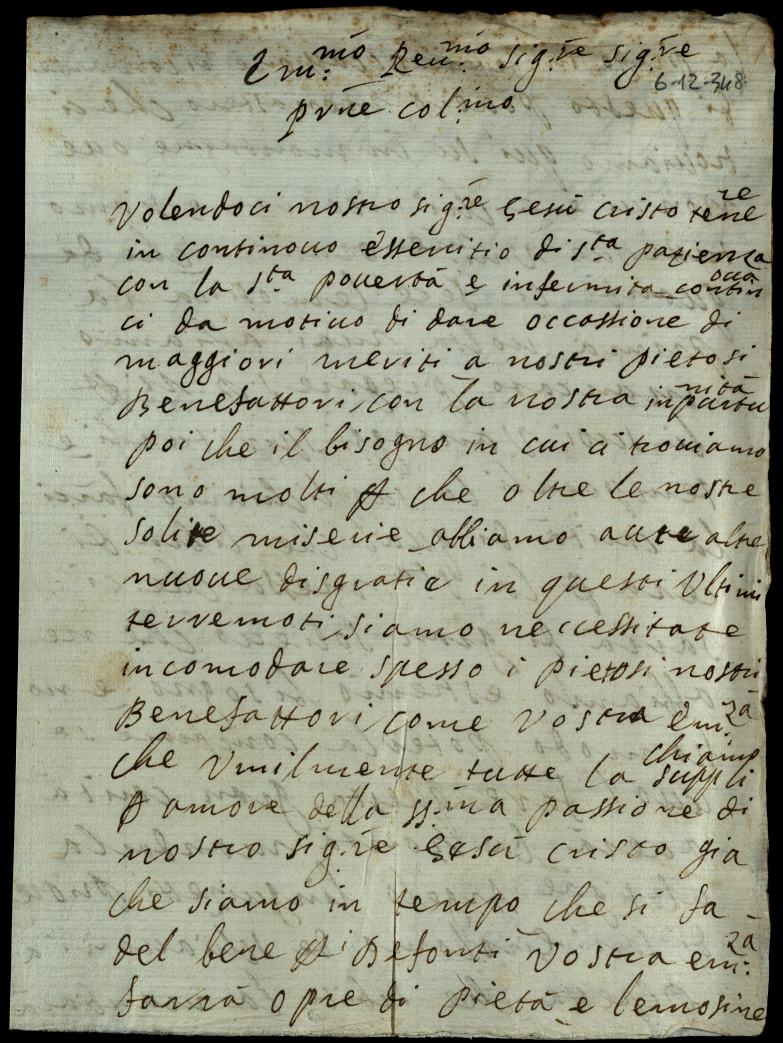 Em.mo Reu.mo sig.re sig.re
6-12-348
prne col.mo
Volendoci nostro sig.re Gesù cristo tenere
in continouo essercitio di s.ta pazienza
con la s.ta pouertà e infermità continoua
ci da motiuo di dare occassione di
maggiori meriti a nostri pietosi
Benefattori, con la nostra inportunità
poi che il bisogno in cui ci trouiamo
sono molti p che oltre le nostre
solite miserie abbiamo aute altre
nuoue disgratie in questi Vltimi
terremoti, siamo neccessitate
incomodare spesso i pietosi nostri
Benefattori, come Vostra em.za
che Vmilmente tutte la supplichiamo
p amore della ss.ma passione di
nostro sig.re Gesù cristo gia
che siamo in tempo che si fa
del bene p i Defonti Vostra em.za
farrà opre di pietà e lemosine